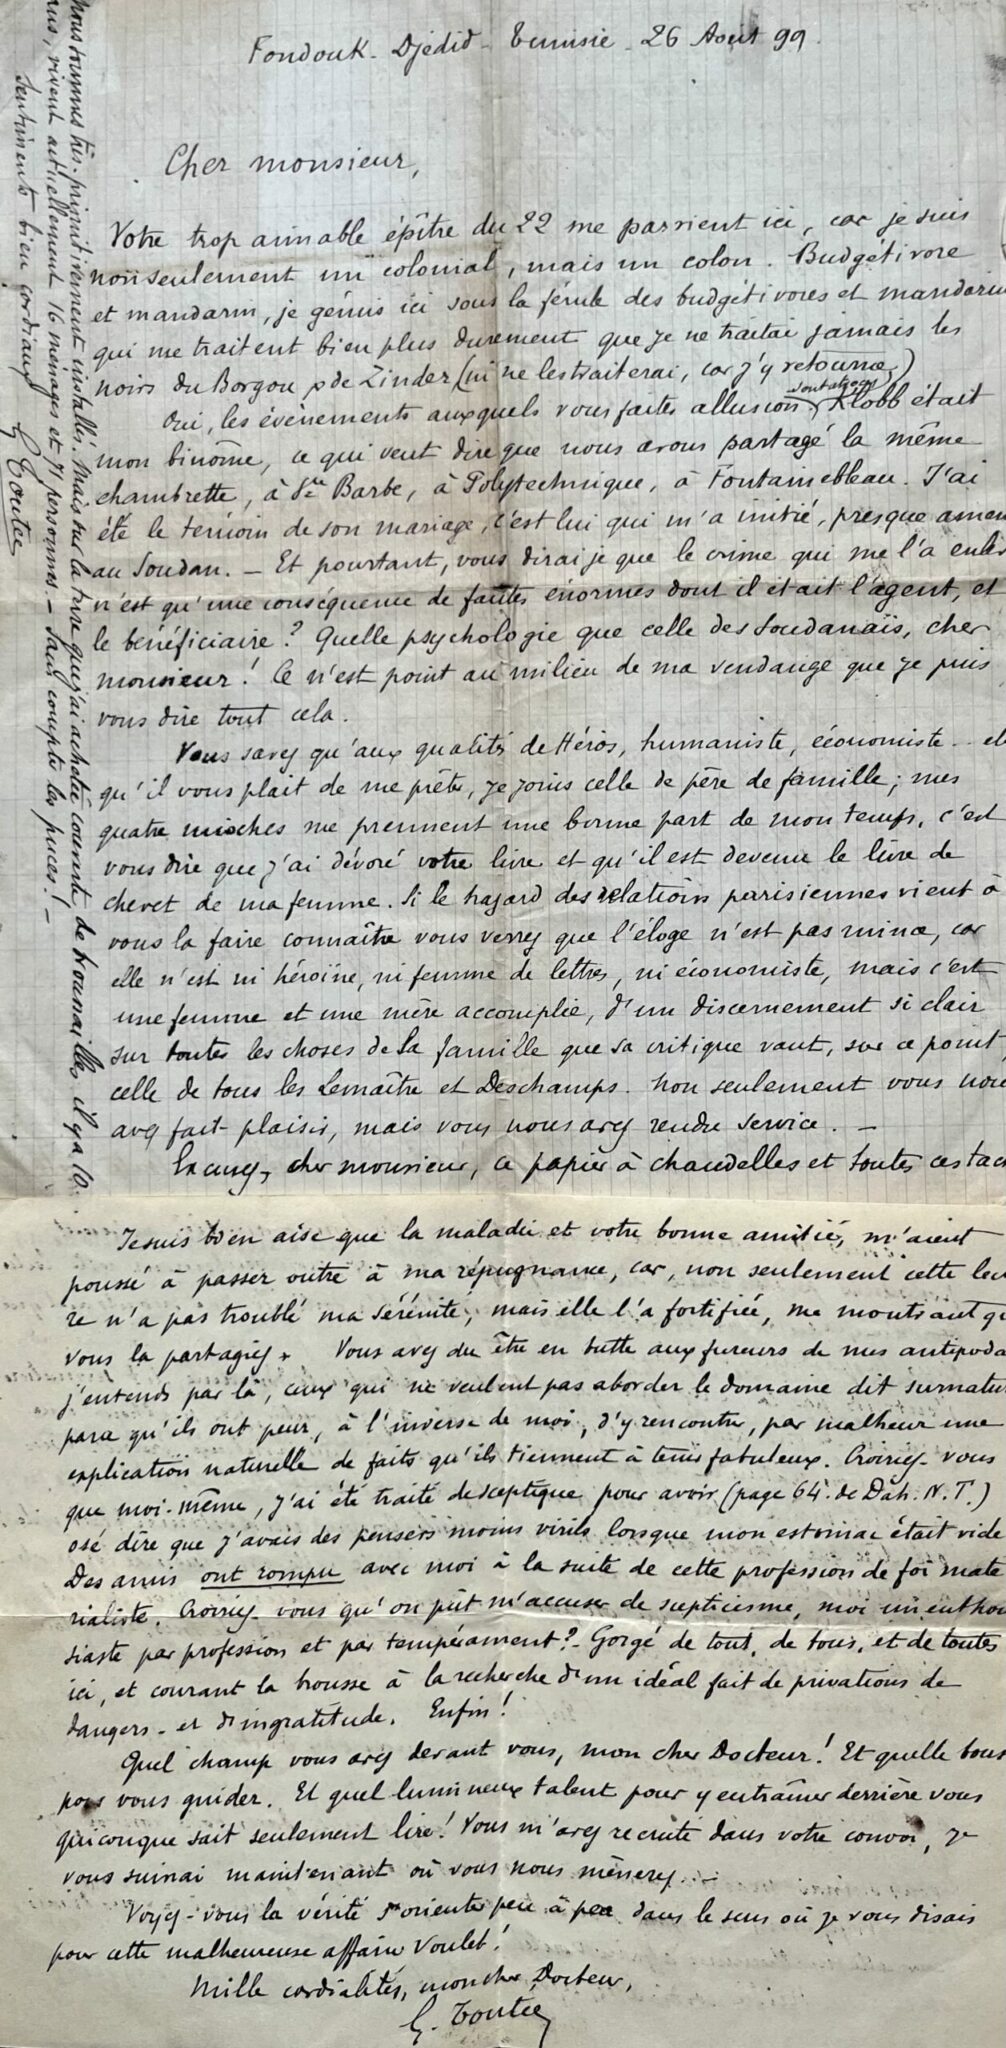 Fondouk-Djédid - Tunisie - 26 Août 99.
Cher monsieur,
Votre trop aimable épître du 22 me parvient ici, car je suis
non seulement un colonial, mais un colon. Budgétivore
et mandarin, je gémis ici sous la férule des budgétivores et mandarin
qui me traitent bien plus durement que je ne traitai jamais les
noirs du Borgou & de Zinder (ni ne les traiterai, car j'y retourne)
Oui, les événements auxquels vous faites allusion sont atroces Klobb était
mon binôme, ce qui veut dire que nous avons partagé la même
chambrette, à Ste Barbe, à Polytechnique, à Fontainebleau. J'ai
été le témoin de son mariage, c'est lui qui m'a initié, presque amen
au Soudan. - Et pourtant, vous dirai je que le crime qui me l'a enlev
n'est qu'une conséquence de fautes énormes dont il était l'agent, et
le bénéficiaire? Quelle psychologie que celle des Soudanais, cher
monsieur! Ce n'est point au milieu de ma vendange que je puis
vous dire tout cela.
Vous savez qu'aux qualités de Héros, humaniste, économiste .. et
qu'il vous plait de me prêter, je joins celle de père de famille; mes
quatre mioches me prennent une bonne part de mon temps, c'est
vous dire que j'ai dévoré votre livre et qu'il est devenu le livre de
chevet de ma femme. Si le hazard des relations parisiennes vient à
vous la faire connaître vous verrez que l'éloge n'est pas mince, car
elle n'est ni héroïne, ni femme de lettres, ni économiste, mais c'est
une femme et une mère accomplie, d'un discernement si clair
sur toutes les choses de la famille que sa critique vaut, sur ce point,
celle de tous les Lemaître et Deschamps. Non seulement vous nou
avez fait plaisir, mais vous nous avez rendu service. -
Excusez, cher monsieur, ce papier à chandelles et toutes ces tac
nous sommes très primitivement installés. Mais sur la terre que j'ai achetée couverte de broussailles il y a 10
ans, vivent actuellement 16 ménages et 71 personnes. - Sans compter les puces! -
Sentiments bien cordiaux
G Toutée
Je suis bien aise que la maladie et votre bonne amitié, m'aient
poussé à passer outre à ma répugnance, car, non seulement cette lectu
re n'a pas troublé ma sérénité, mais elle l'a fortifiée, me montrant qu
vous la partagiez. Vous avez du être en butte aux fureurs de mes antipoda
j'entends par là, ceux qui ne veulent pas aborder le domaine dit surnatur
parce qu'ils ont peur, à l'inverse de moi, d'y rencontrer, par malheur une
explication naturelle de faits qu'ils tiennent à tenir fabuleux. Croiriez-vous
que moi-même, j'ai été traité de sceptique pour avoir (page 64 de Dah. N. T.)
osé dire que j'avais des pensers moins virils lorsque mon estomac était vide
Des amis ont rompu avec moi à la suite de cette profession de foi maté
rialiste. Croiriez-vous qu'on pût m'accuser de scepticisme, moi un enthou
siaste par profession et par tempérament? - Gorgé de tout, de tous, et de toutes
ici, et courant la brousse à la recherche d'un idéal fait de privations de
dangers - et d'ingratitude. Enfin!
Quel champ vous avez devant vous, mon cher Docteur! Et quelle bous
pour vous guider. Et quel lumineux talent pour y entraîner derrière vous
quiconque sait seulement lire! Vous m'avez recruté dans votre convoi, je
vous suivrai maintenant où vous nous mènerez. -
Voyez-vous la vérité s'orienter peu à peu dans le sens où je vous disais
pour cette malheureuse affaire Voulet!
Mille cordialités, mon cher Docteur,
G. Toutée